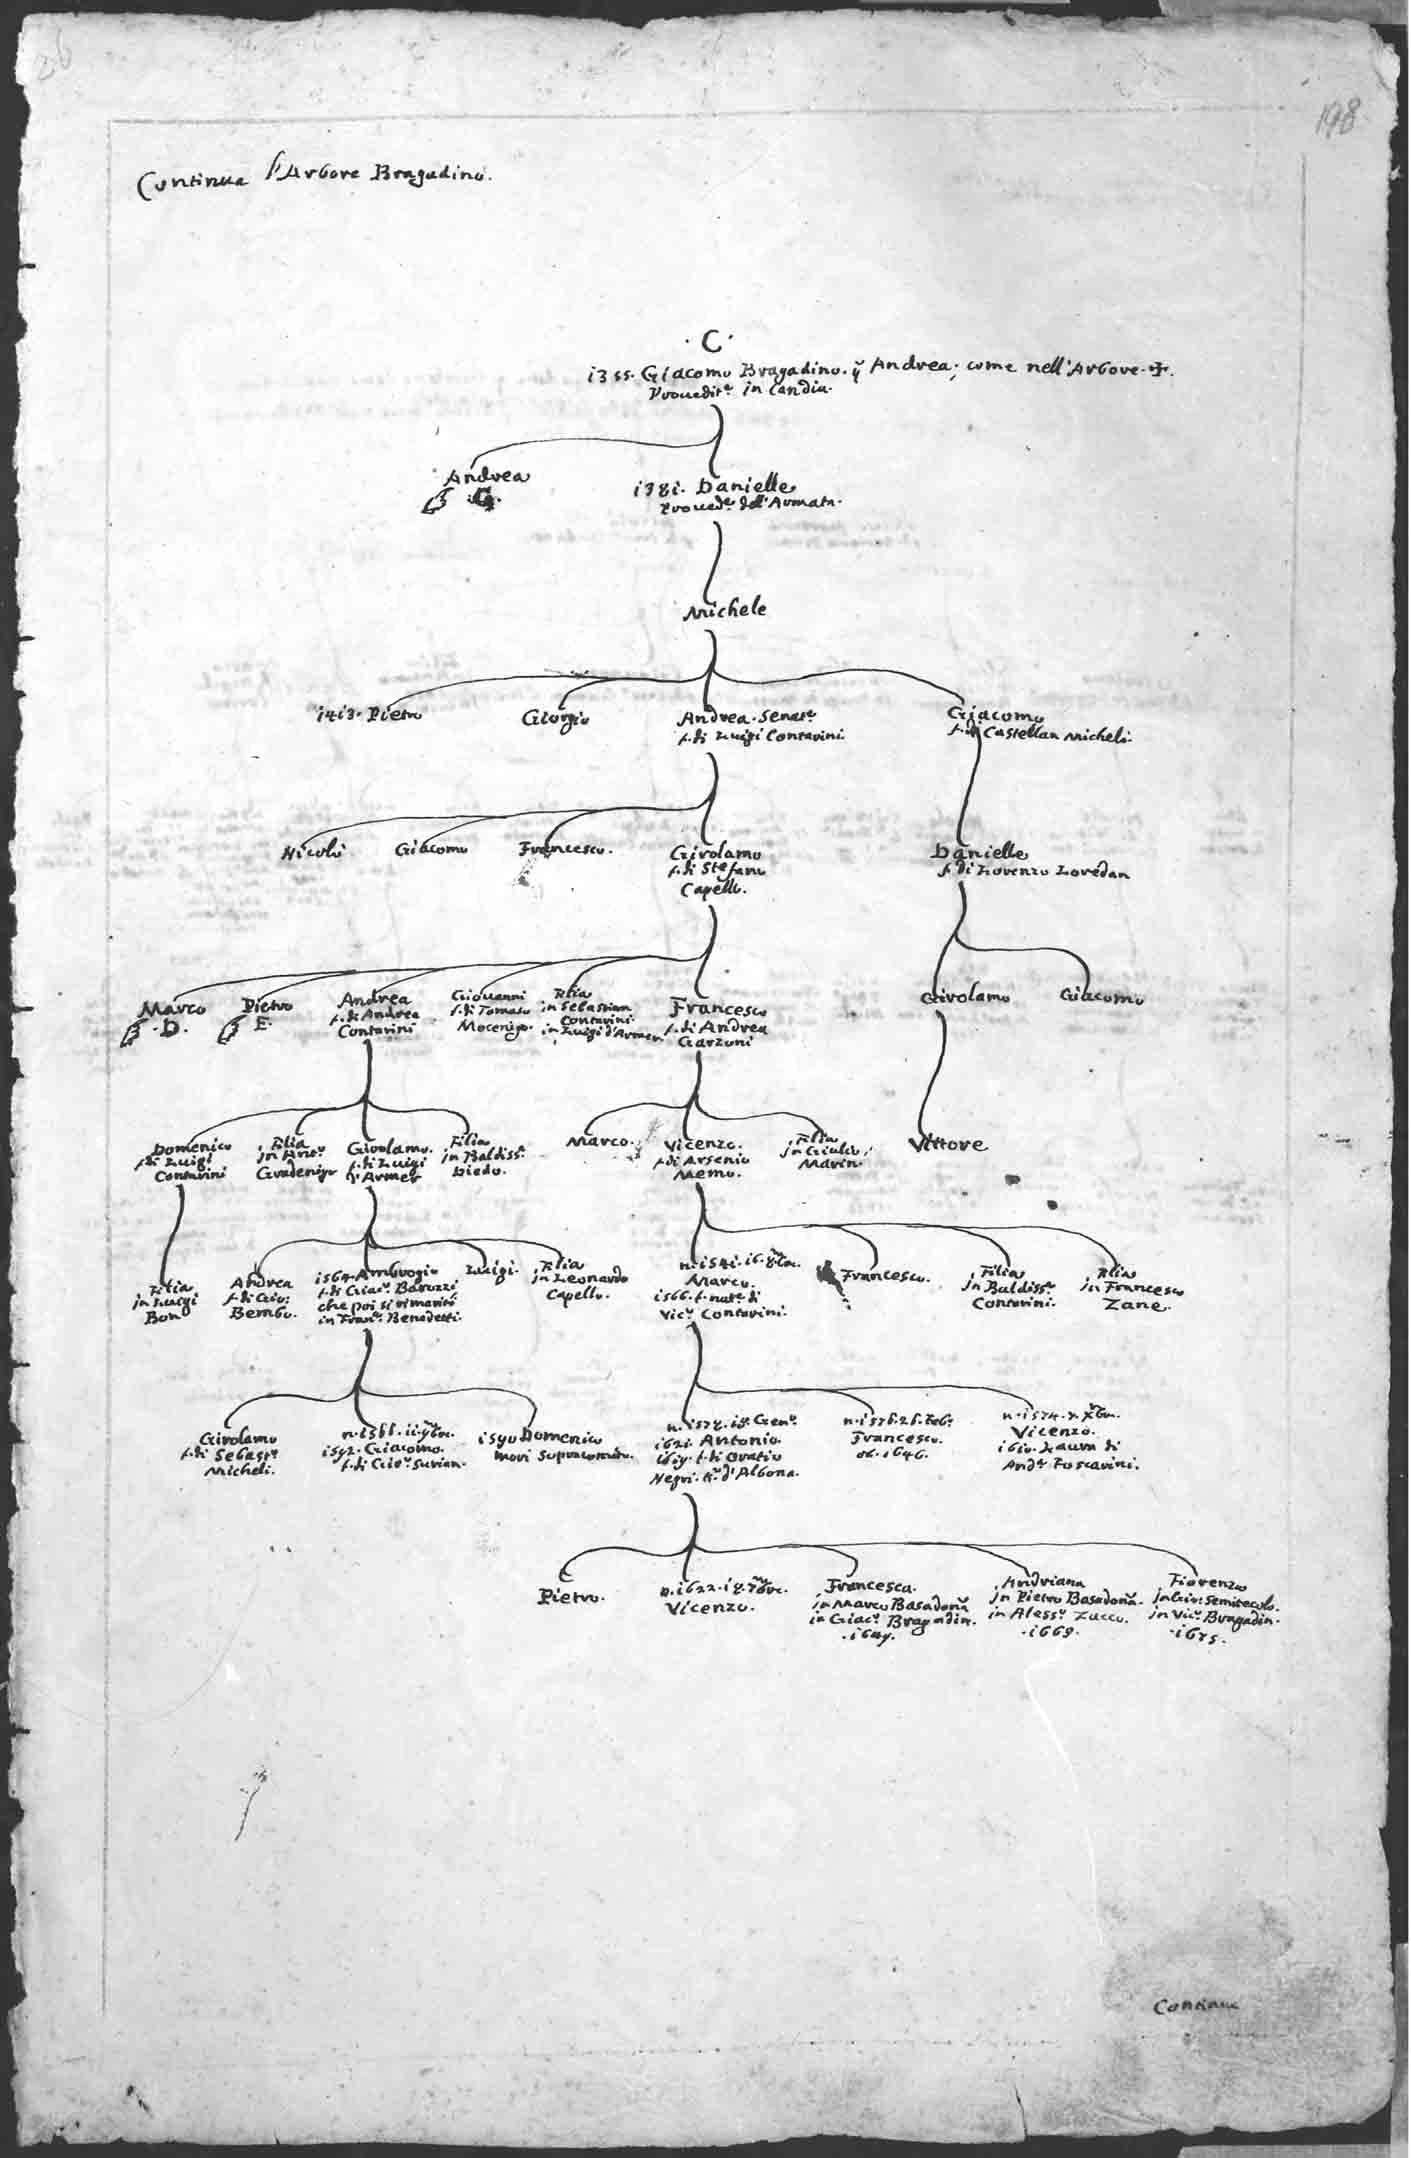 198
Continua l'Arbore Bragadino.
. C .
1355. Giacomo Bragadino. q Andrea; come nell'Arbore. ✠.
Prouedit.e in Candia.
Andrea
G.
1381. Danielle
Proued.e dell'Armata.
Michele
1413. Pietro
Giorgio
Andrea. Senat.e
f. di Luigi Contarini.
Giacomo
f. di Castellan Micheli.
Nicolò
Giacomo
Francesco.
Girolamo
f. di Stefano
Capello.
Danielle
f. di Lorenzo Loredan
Marco
. D.
Pietro
E.
Andrea
f. di Andrea
Contarini
Giouanni
f. di Tomaso
Mocenigo.
Filia
in Sebastian
Contarini.
in Luigi d'Armer.
Francesco
f. di Andrea
Garzoni
Girolamo
Giacomo
Domenico
f. di Luigi
Contarini
Filia
in Ant.o
Gradenigo
Girolamo.
f. di Luigi
d'Armer
Filia
in Baldiss.a
Diedo.
Marco.
Vicenzo.
f. di Arsenio
Memo.
Filia
in Giulio
Marin.
Vittore
Filia
in Luigi
Bon
Andrea
f. di Gio:
Bembo.
1564. Ambrogio
f. di Giac.o Barozzi
che poi si rimaritò
in Fran.o Benedetti.
Luigi.
Filia
in Leonardo
Capello.
n. 1541. 16. 8bre.
Marco.
1566. f. nat.e di
Vic.o Contarini.
Francesco.
Filia
in Baldiss.a
Contarini.
Filia
in Francesco
Zane.
Girolamo
f. di Sebast.o
Micheli.
n. 1566. 11. 9bre.
1592. Giacomo.
f. di Gio.e Surian.
1590 Domenico
morì Sopracomito.
n. 1572. 18. Gen.o
1621. Antonio.
1619. f. di Oratio
Negri. K.r d'Albona.
n. 1576. 26. Feb.o
Francesco.
ob. 1646.
n. 1574. 7. Xbre.
Vicenzo.
1610. Laura di
And.a Foscarini.
Pietro.
n. 1622. 18. 7bre.
Vicenzo.
Francesca.
in Marco Basadona
in Giac.o Bragadin.
. 1649.
Andriana
in Pietro Basadona.
in Aless.o Zucco.
. 1669.
Fiorenza
in Gio: Semitecolo.
in Vic.o Bragadin.
. 1675.
Continua